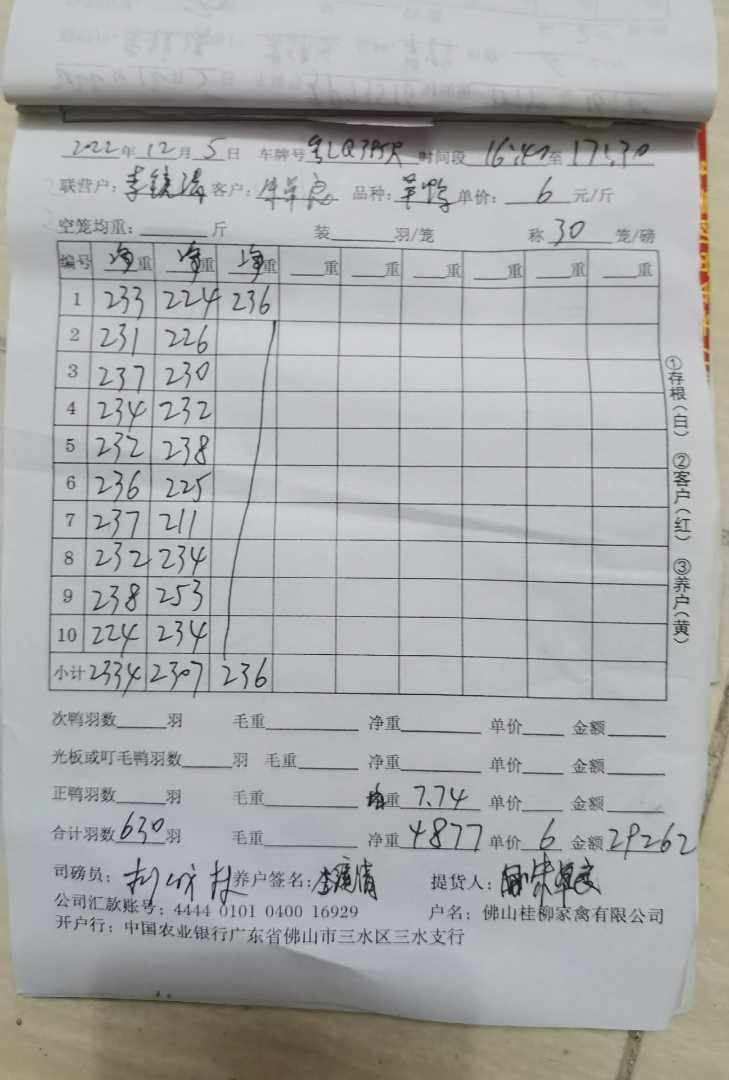 2022年12月5日 车牌号 时间段 16:40至17:30
联营户: 客户: 品种: 单价: 6 元/斤
空笼均重: 斤 装 羽/笼 称 30 笼/磅
编号 净重 净重 净重 重 重 重 重 重 重
1 233 224 236
2 231 226
3 237 230
4 234 232
5 232 238
6 236 225
7 237 211
8 232 234
9 238 253
10 224 234
小计 2334 2307 236
次鸭羽数 羽 毛重 净重 单价 金额
光板或叮毛鸭羽数 羽 毛重 净重 单价 金额
正鸭羽数 羽 毛重 均重 7.74 单价 金额
合计羽数 630 羽 毛重 净重 4877 单价 6 金额 29262
司磅员: 养户签名: 提货人:
公司汇款账号: 4444 0101 0400 16929 户名: 佛山桂柳家禽有限公司
开户行: 中国农业银行广东省佛山市三水区三水支行
①存根(白) ②客户(红) ③养户(黄)